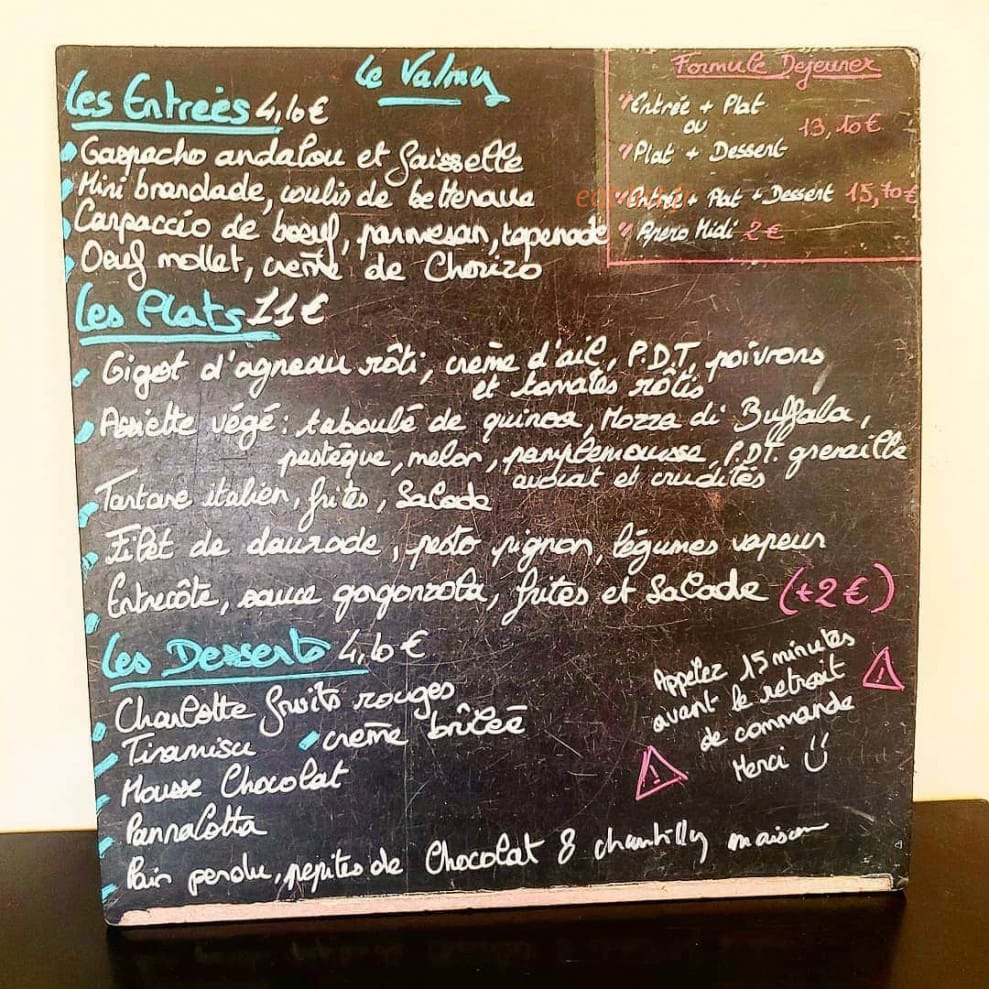 Le Valmy
Les Entreés 4,10€
Gaspacho andalou et faisselle
Mini brandade, coulis de betterave
Carpaccio de boeuf, parmesan, tapenade
Oeuf mollet, crème de Chorizo
Formule Dejeuner
Entrée + Plat
ou
Plat + Dessert
13,10€
Entrée + Plat + Dessert 15,70€
Apero Midi 2€
Les Plats 11€
Gigot d'agneau rôti, crème d'ail, P.D.T, poivrons
et tomates rôtis
Assiette végé: taboulé de quinoa, Mozza di Buffala,
pastèque, melon, pamplemousse, P.D.T. grenaille
avocat et crudités
Tartare italien, frites, Salade
Filet de daurade, pesto pignon, légumes vapeur
Entrecôte, sauce gogonzola, frites et Salade (+2€)
Les Desserts 4,10€
Charlotte fruits rouges
Tiramisu crème brûleé
Mousse Chocolat
Pannacotta
Pain perdu, pepites de Chocolat & chantilly maison
Appelez 15 minutes
avant le retrait
de commande
Merci